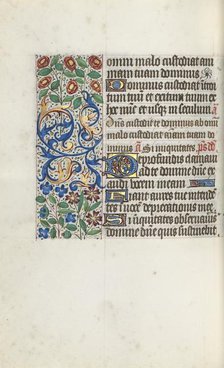 omni malo custodiat ani
mam tuam dominus. D
Dominus custodiat introi
tum tuū et exitum tuum
ex hoc nunc et usq in seculum. A
Dominus custodit te ab omni
malo custodiat animam tuam
dominus. A Si iniquitates. ps. d̄d
De profundis clamaui
ad te domine dn̄e ex
audi vocem meam
Fiant aures tue intende
tes in vocē deprecationis mee
Si iniquitates obseruaueris
domine dn̄e quis sustinebit